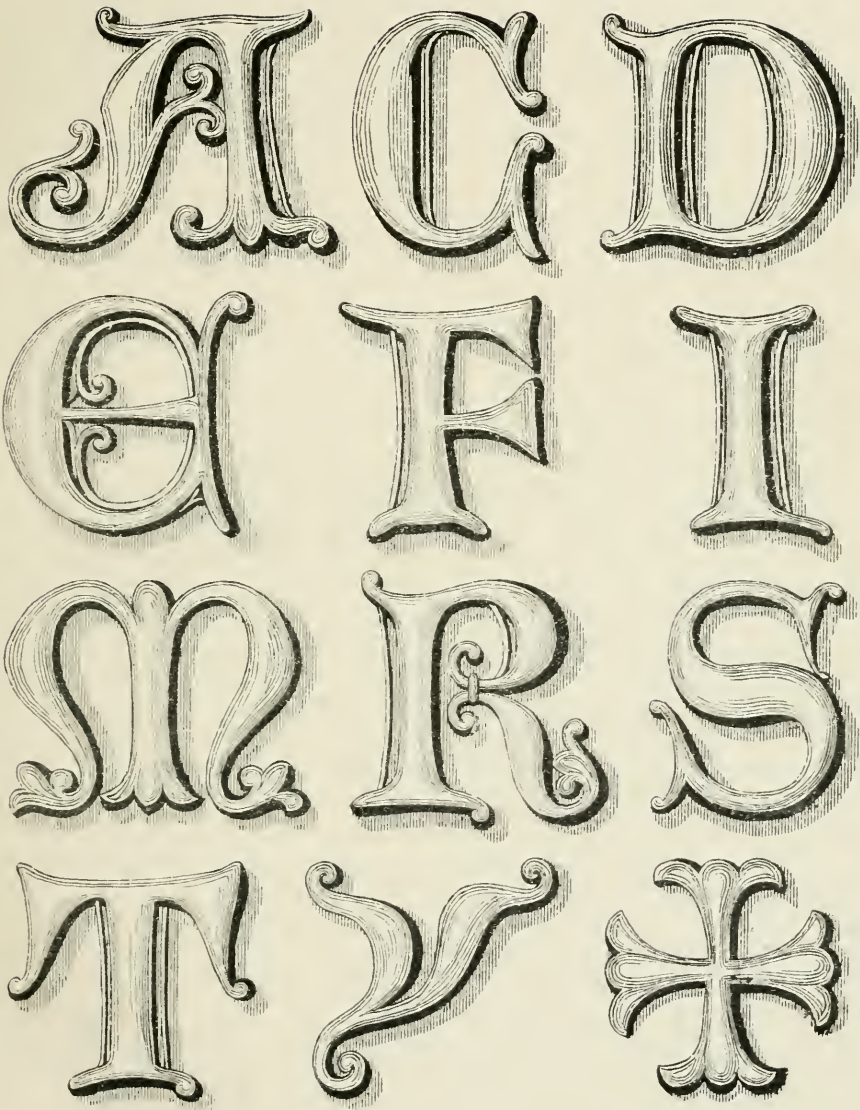 A C D
E F I
M R S
T Y